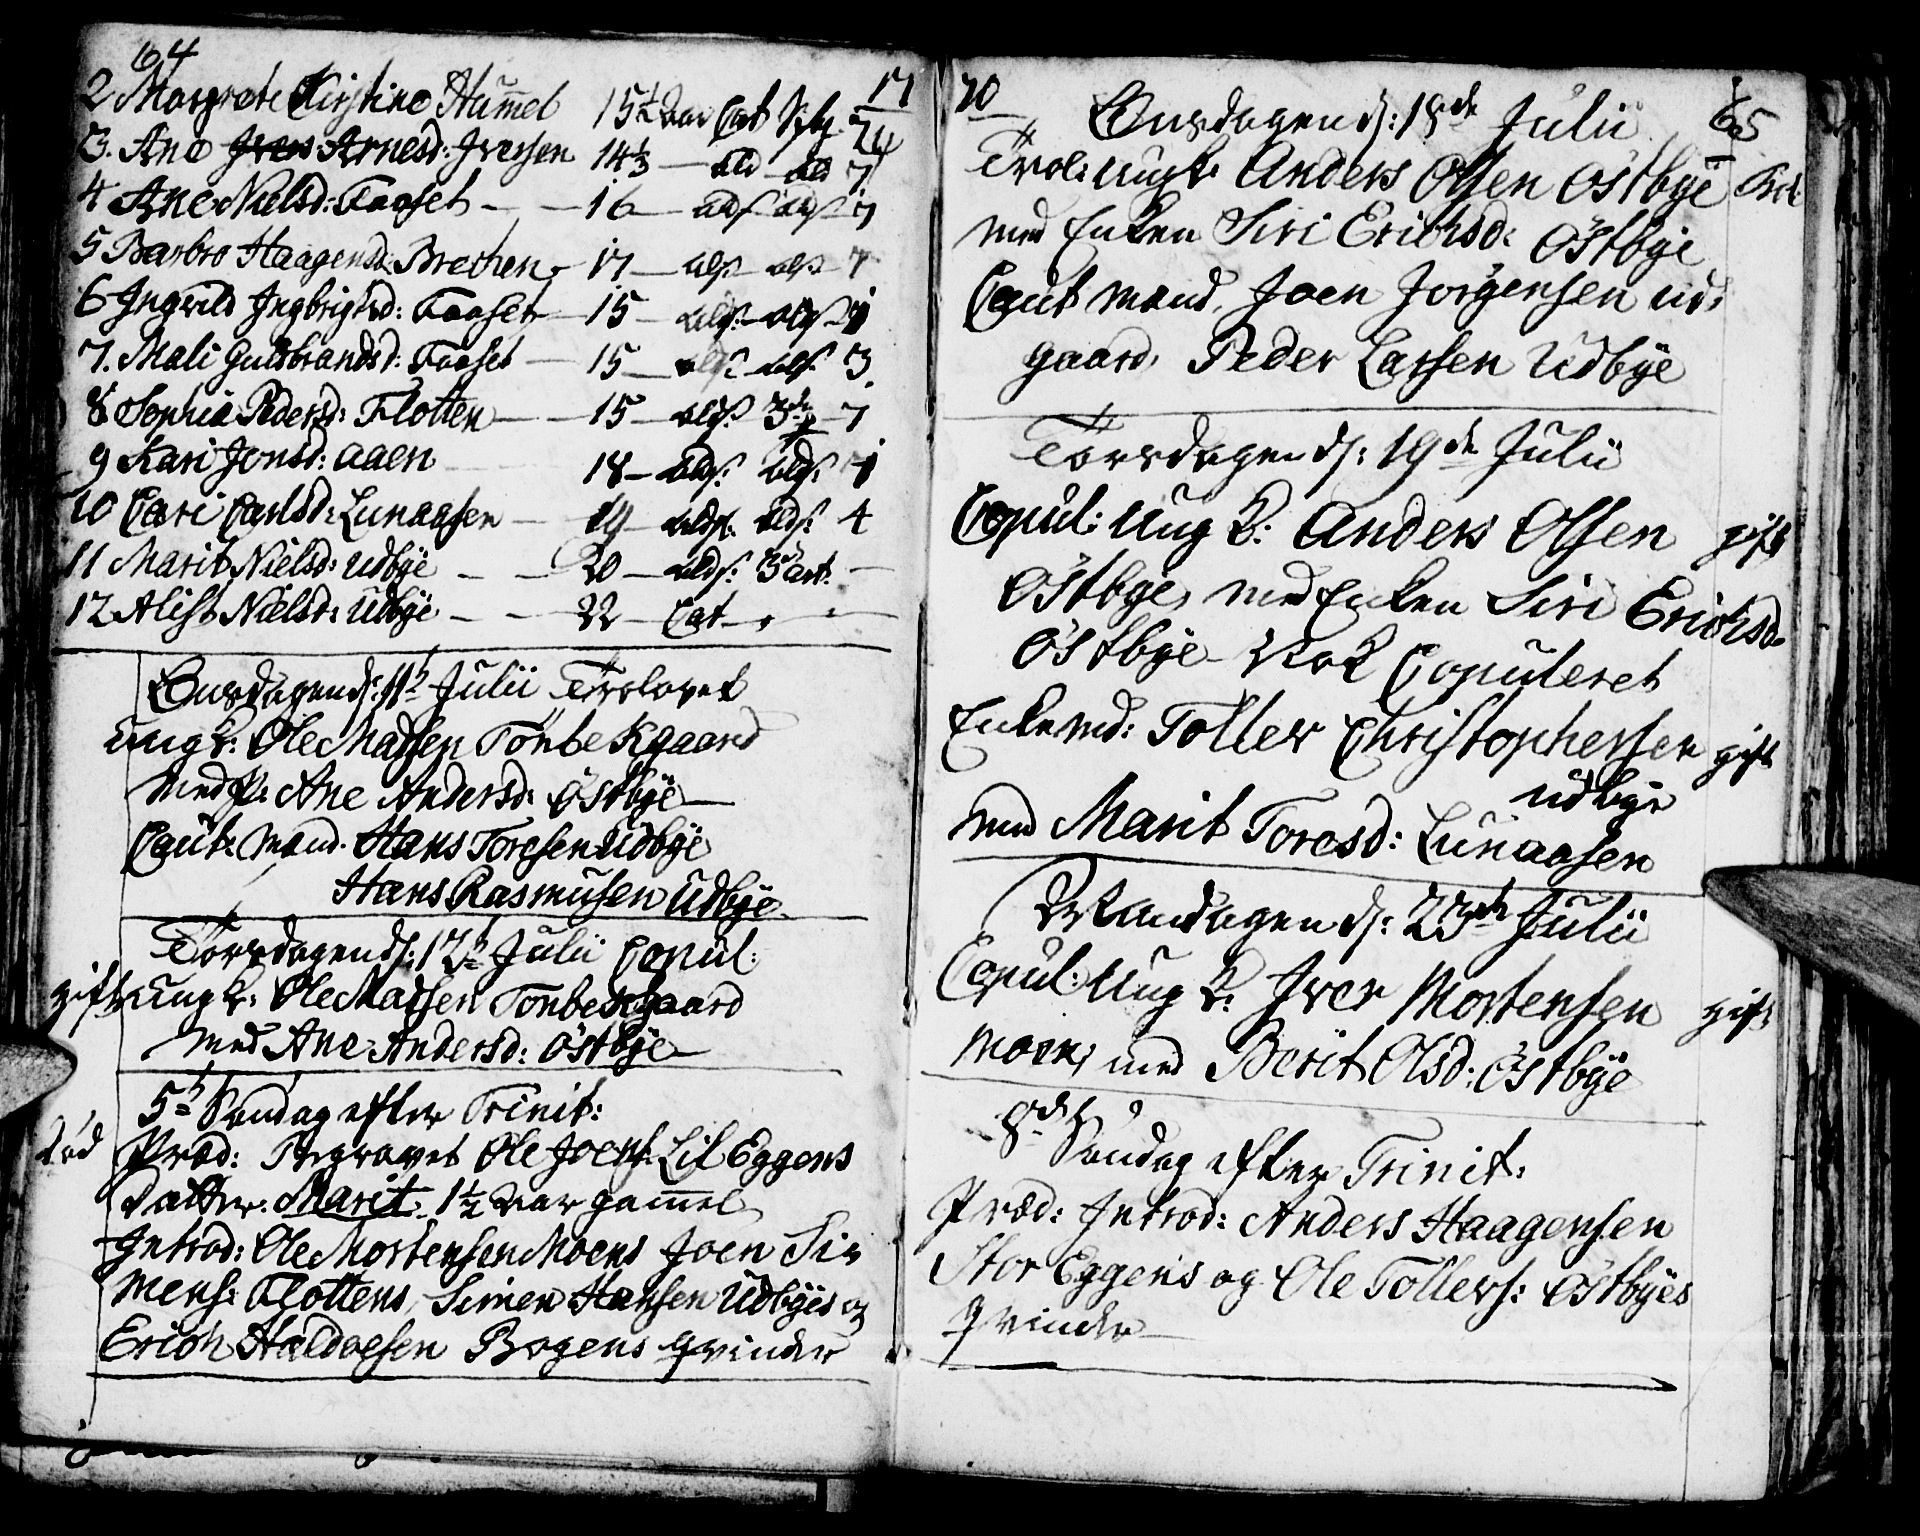 64
17
2 Margrete Kirstine Hummel 15½ aar Cat
3. Ane Arnesd: Iversen 14⅓ — 7
4 Ane Nielsd: Faaset — 16 — 7
5 Barbro Haagensd: Brechen — 17 — 7
6 Ingvild Ingbrigtsd: Faaset 15 —
7. Mali Guldbrandsd: Faaset — 15 — 3
8 Sophia Pedersd: Flotten — 15 — 7
9 Kari Jonsd: Aaen 18 —
10 Cari Carlsd: Lunaasen — 19 — 4
11 Marit Nielsd: Udbye — — 20 — 3 art.
12 Alist Nielsd: Udbye — — 22 — Cat —
Onsdagen d: 11 Julii Trolovet
Ungk: Ole Massen Tönbekgaard
med P: Ane Andersd: Östbye —
Caut: Mænd. Hans Toresen Udbye
Hans Rasmusen Udbye
Torsdagen d: 12 Julii Copul:
gift Ungk: Ole Massen Tonbekgaard
med Ane Andersd: Östbye —
5 Søndag efter Trinit:
død Præd: Begravet Ole Joens: Lil Eggens
Datter: Marit 1½ aar gammel
Introd: Ole Mortensen Moens Joen Si=
mens: Flottens, Simen Hansen Udbyes og
Erich Haldoesen Bogens Qvinder
20
65
Onsdagen d: 18de Julii
Trol: Ungk: Anders Olsen Östbye
med Enken Siri Erichsd: Östbye
Caut mænd, Joen Jorgensen Ud:
gaard, Peder Larsen Udbye
Torsdagen d: 19de Julii
Copul: Ung K: Anders Olsen gift
Östbye, med Enken Siri Erichsd:
Östbye — Copuleret
Enkemd: Toller Christophersen gift
Udbye
med Marit Toresd: Lunaasen
Mandagen d: 23de Julii
Copul: Ung K: Iver Mortensen gift
Moen, med Berit Olsd: Östbye
8de Søndag efter Trinit:
Præd: Introd: Anders Haagensen
Stor Eggens og Ole Tollers: Östbyes
Qvinder —